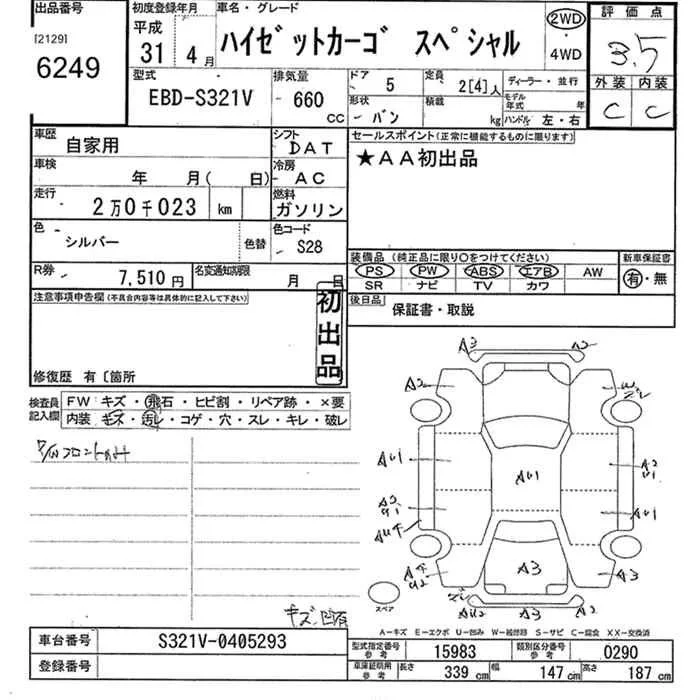 出品番号
[2129]
6249
初度登録年月
平成
31 4月
車名・グレード
ハイゼットカーゴ スペシャル
2WD
・
4WD
評価点
3.5
外装 内装
C C
型式
EBD-S321V
排気量
660
CC
ドア
5
定員
2[4]人
ディーラー・並行
形状
バン
積載
kg
モデル年式
年
ハンドル 左・右
車歴
自家用
シフト
DAT
車検
年 月( 日)
冷房
AC
走行
2万0千023 km
燃料
ガソリン
色
シルバー
色替
色コード
S28
R券
7,510円
名変通知期限
月 日
セールスポイント(正常に機能するものに限ります)
★AA初出品
装備品(純正品に限り○をつけてください)
PS PW ABS エアB AW
SR ナビ TV カワ
新車保証書
有・無
後日品
保証書・取説
注意事項申告欄(不具合内容等は具体的に記入して下さい)
初出品
修復歴 有〔箇所
検査員記入欄
FW キズ・飛石・ヒビ割・リペア跡・×要
内装 キズ・汚レ・コゲ・穴・スレ・キレ・破レ
キズ、凹有
A3 A2
A2 W2
AU1 AU1 A2
U1
A2
AU4 AU1
A4 A3 A3
U2
AU2 A3 A2
スペア
A-キズ E-エクボ U-凹み W-補修跡 S-サビ C-腐食 XX-交換済
車台番号
S321V-0405293
登録番号
型式指定番号
参考
15983
類別区分番号
参考
0290
車庫証明用
参考
長さ
339cm
幅
147cm
高さ
187cm